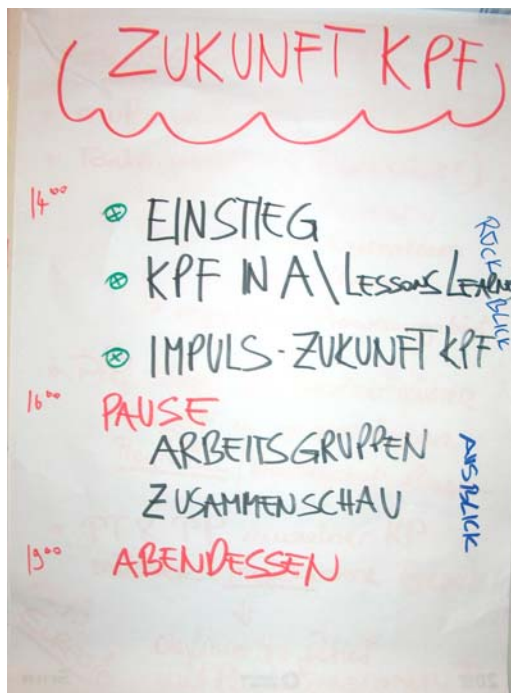 ZUKUNFT KPF
14⁰⁰
EINSTIEG
KPF IN A\LESSONS LEARN
RÜCKBLICK
IMPULS - ZUKUNFT KPF
16⁰⁰ PAUSE
ARBEITSGRUPPEN
AUSBLICK
ZUSAMMENSCHAU
19⁰⁰ ABENDESSEN